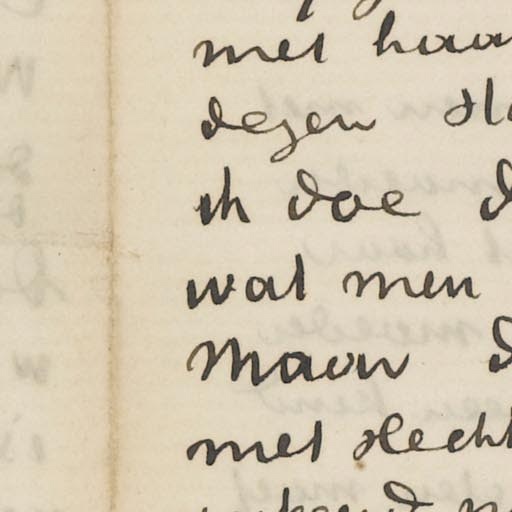 met haar
dezen
ik doe
wat men
maar
met slecht